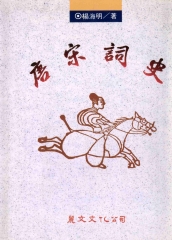 ◎楊海明／著
唐宋詞史
麗文文化公司